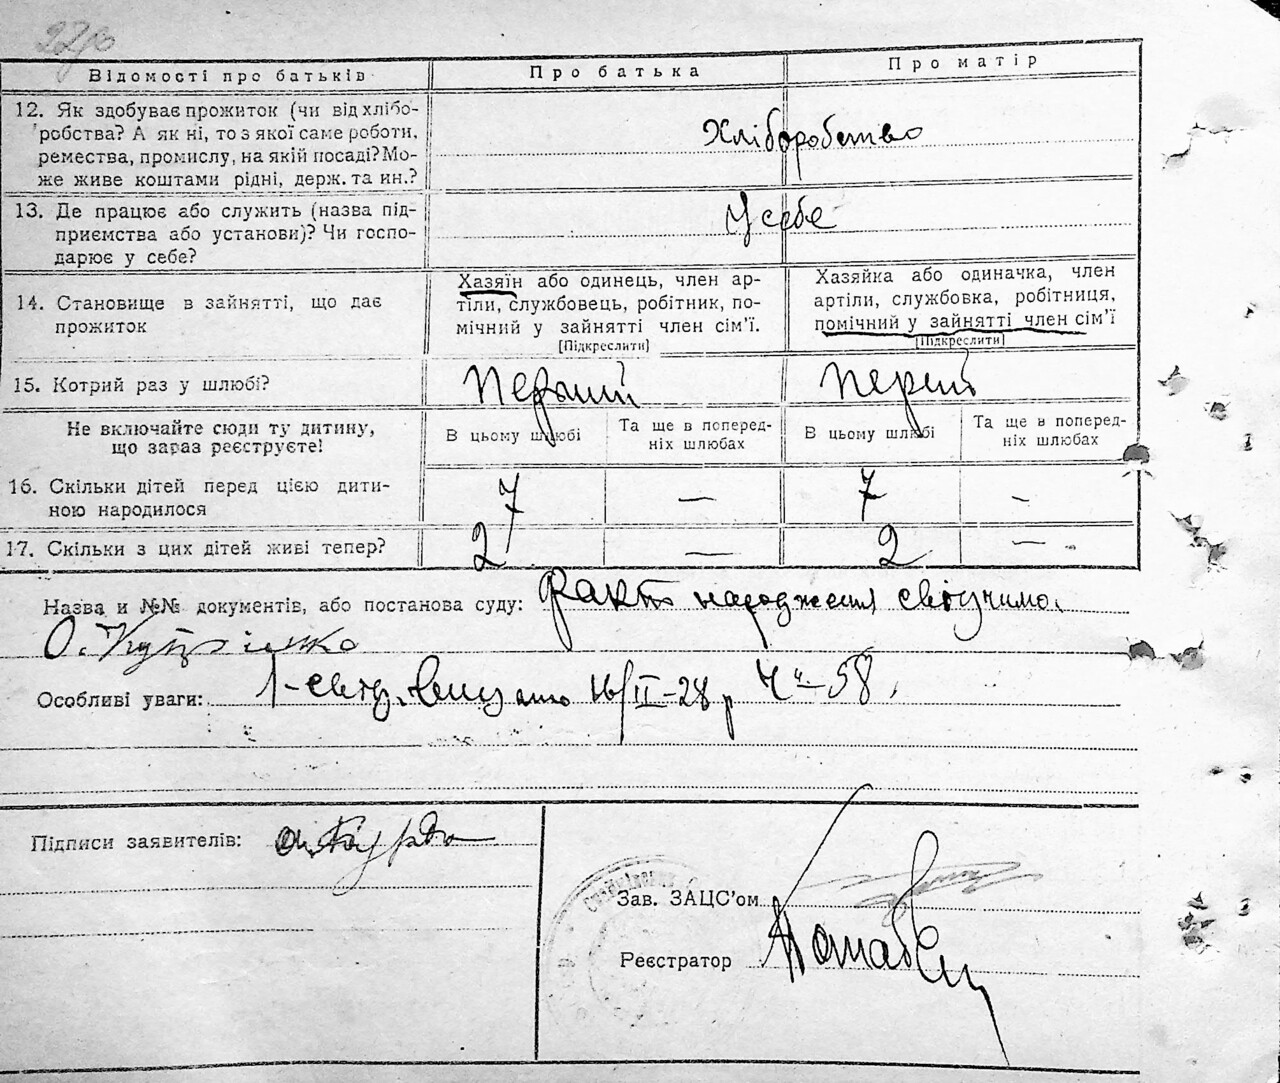 Відомості про батьків
Про батька
Про матір
12. Як здобуває прожиток (чи від хлібо-
робства? А як ні, то з якої саме роботи,
ремества, промислу, на якій посаді? Мо-
же живе коштами рідні, держ. та ин.?
Хліборобство
13. Де працює або служить (назва під-
приємства або установи)? Чи госпо-
дарює у себе?
У себе
14. Становище в зайнятті, що дає
прожиток
Хазяїн або одинець, член ар-
тіли, службовець, робітник, по-
мічний у зайнятті член сім'ї.
[Підкреслити]
Хазяйка або одиначка, член
артіли, службовка, робітниця,
помічний у зайнятті член сім'ї
[Підкреслити]
15. Котрий раз у шлюбі?
Перший
Не включайте сюди ту дитину,
що зараз реєструєте!
В цьому шлюбі
Та ще в поперед-
ніх шлюбах
В цьому шлюбі
Та ще в поперед-
ніх шлюбах
16. Скільки дітей перед цією дити-
ною народилося
7
—
7
—
17. Скільки з цих дітей живі тепер?
2
—
2
—
Назва и №№ документів, або постанова суду: Факт народження свідчимо.
О.
Особливі уваги: 16/II-28 р 58
Підписи заявителів:
Зав. ЗАЦС'ом
Реєстратор